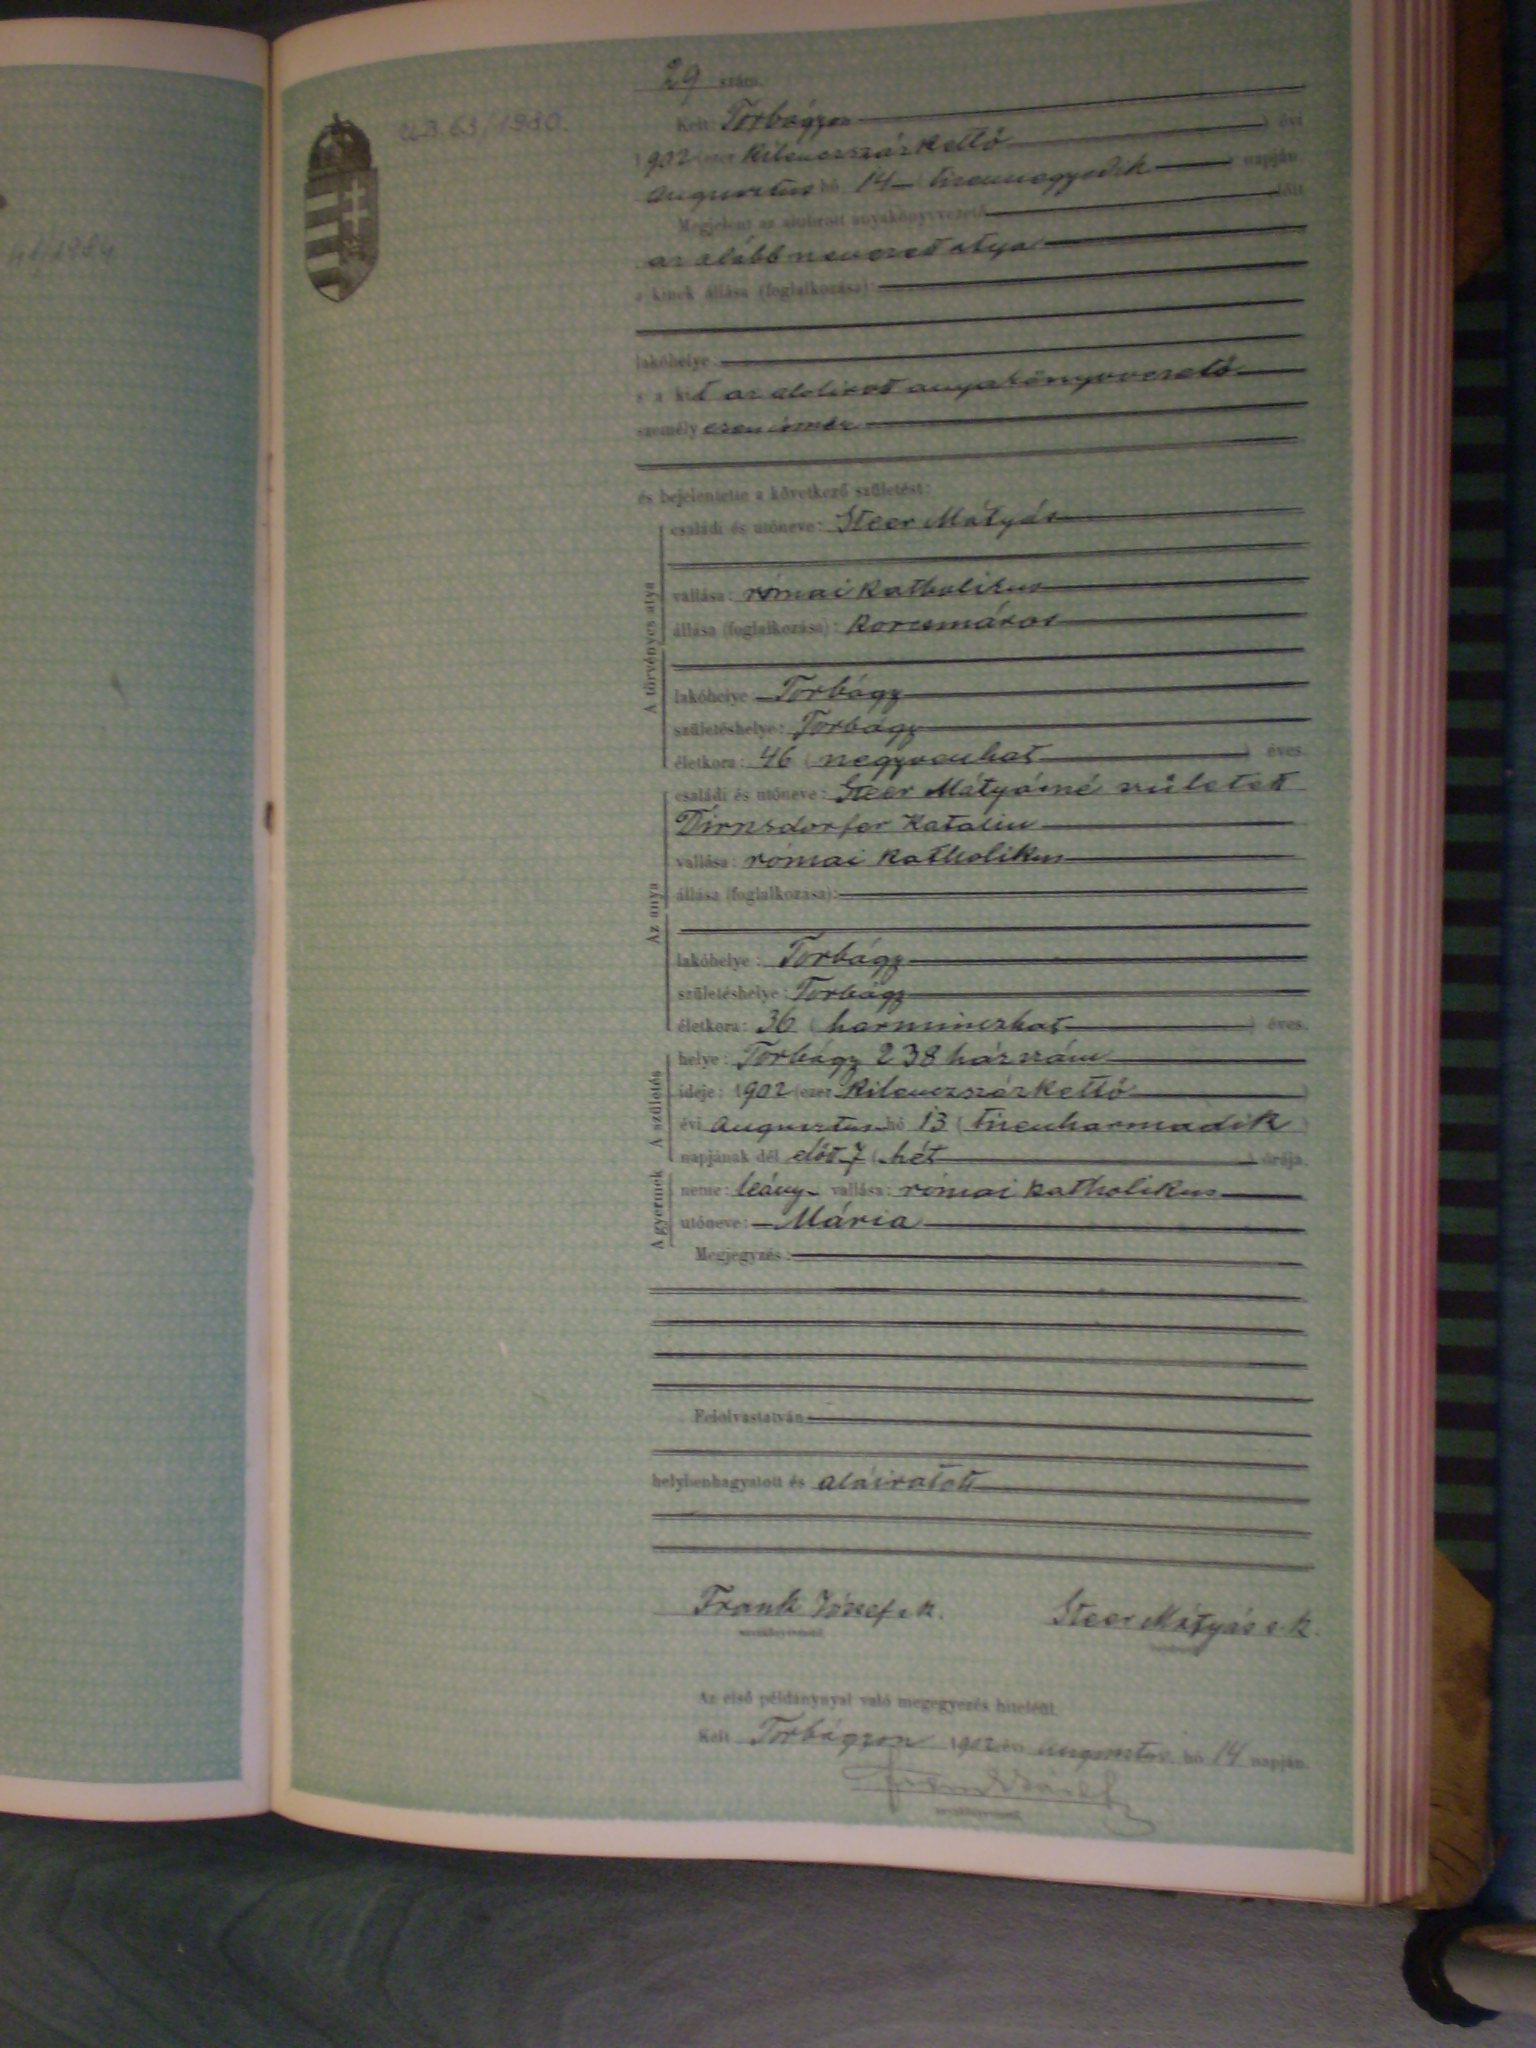 41/1984
29 szám.
U.B. 63/1980.
Kelt: Torbágyon
1902 (ezer kilenczszázkettő ) évi
augusztus hó 14 ( tizennegyedik ) napján.
Megjelent az alulirott anyakönyvvezető előtt
az alább nevezett atya
a kinek állása (foglalkozása):
lakóhelye:
s a kit az alulirott anyakönyvvezető
személyesen ismer
és bejelentette a következő születést:
A törvényes atya
családi és utóneve: Steer Mátyás
vallása: római katholikus
állása (foglalkozása): korcsmáros
lakóhelye: Torbágy
születéshelye: Torbágy
életkora: 46 ( negyvenhat ) éves.
Az anya
családi és utóneve: Steer Mátyásné született
Dirnsdorfer Katalin
vallása: római katholikus
állása (foglalkozása):
lakóhelye: Torbágy
születéshelye: Torbágy
életkora: 36 ( harminczhat ) éves.
A születés
helye: Torbágy 238 házszám
ideje: 1902 (ezer kilenczszázkettő )
évi augusztus hó 13 ( tizenharmadik )
napjának dél előtt 7 ( hét ) órája.
A gyermek
neme: leány vallása: római katholikus
utóneve: Mária
Megjegyzés:
Felolvastatván
helybenhagyatott és aláiratott
Frank József s.k. Steer Mátyás s.k.
anyakönyvvezető
Az első példánynyal való megegyezés hiteléül.
Kelt Torbágyon 1902 évi augusztus hó 14 napján.
anyakönyvvezető